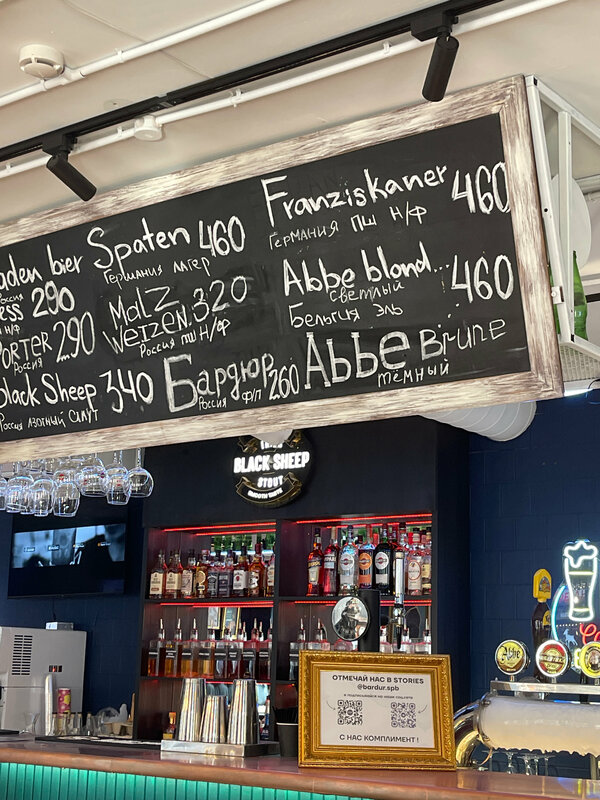 aden bier
Россия
ess 290
Н/Ф
PORTER 290
Россия
Black Sheep 340
Россия АЗОТНЫЙ СТАУТ
Spaten 460
Германия ЛАГЕР
Malz
Weizen. 320
Россия ПШ Н/Ф
Бардюр 260
Россия Ф/П
Franziskaner 460
ГЕРМАНИЯ ПШ Н/Ф
Abbe blond... 460
светлый
Бельгия эль
Abbe Brune
тёмный
BLACK SHEEP
STOUT
ОТМЕЧАЙ НАС В STORIES
@bardur.spb
С НАС КОМПЛИМЕНТ!
Abbe